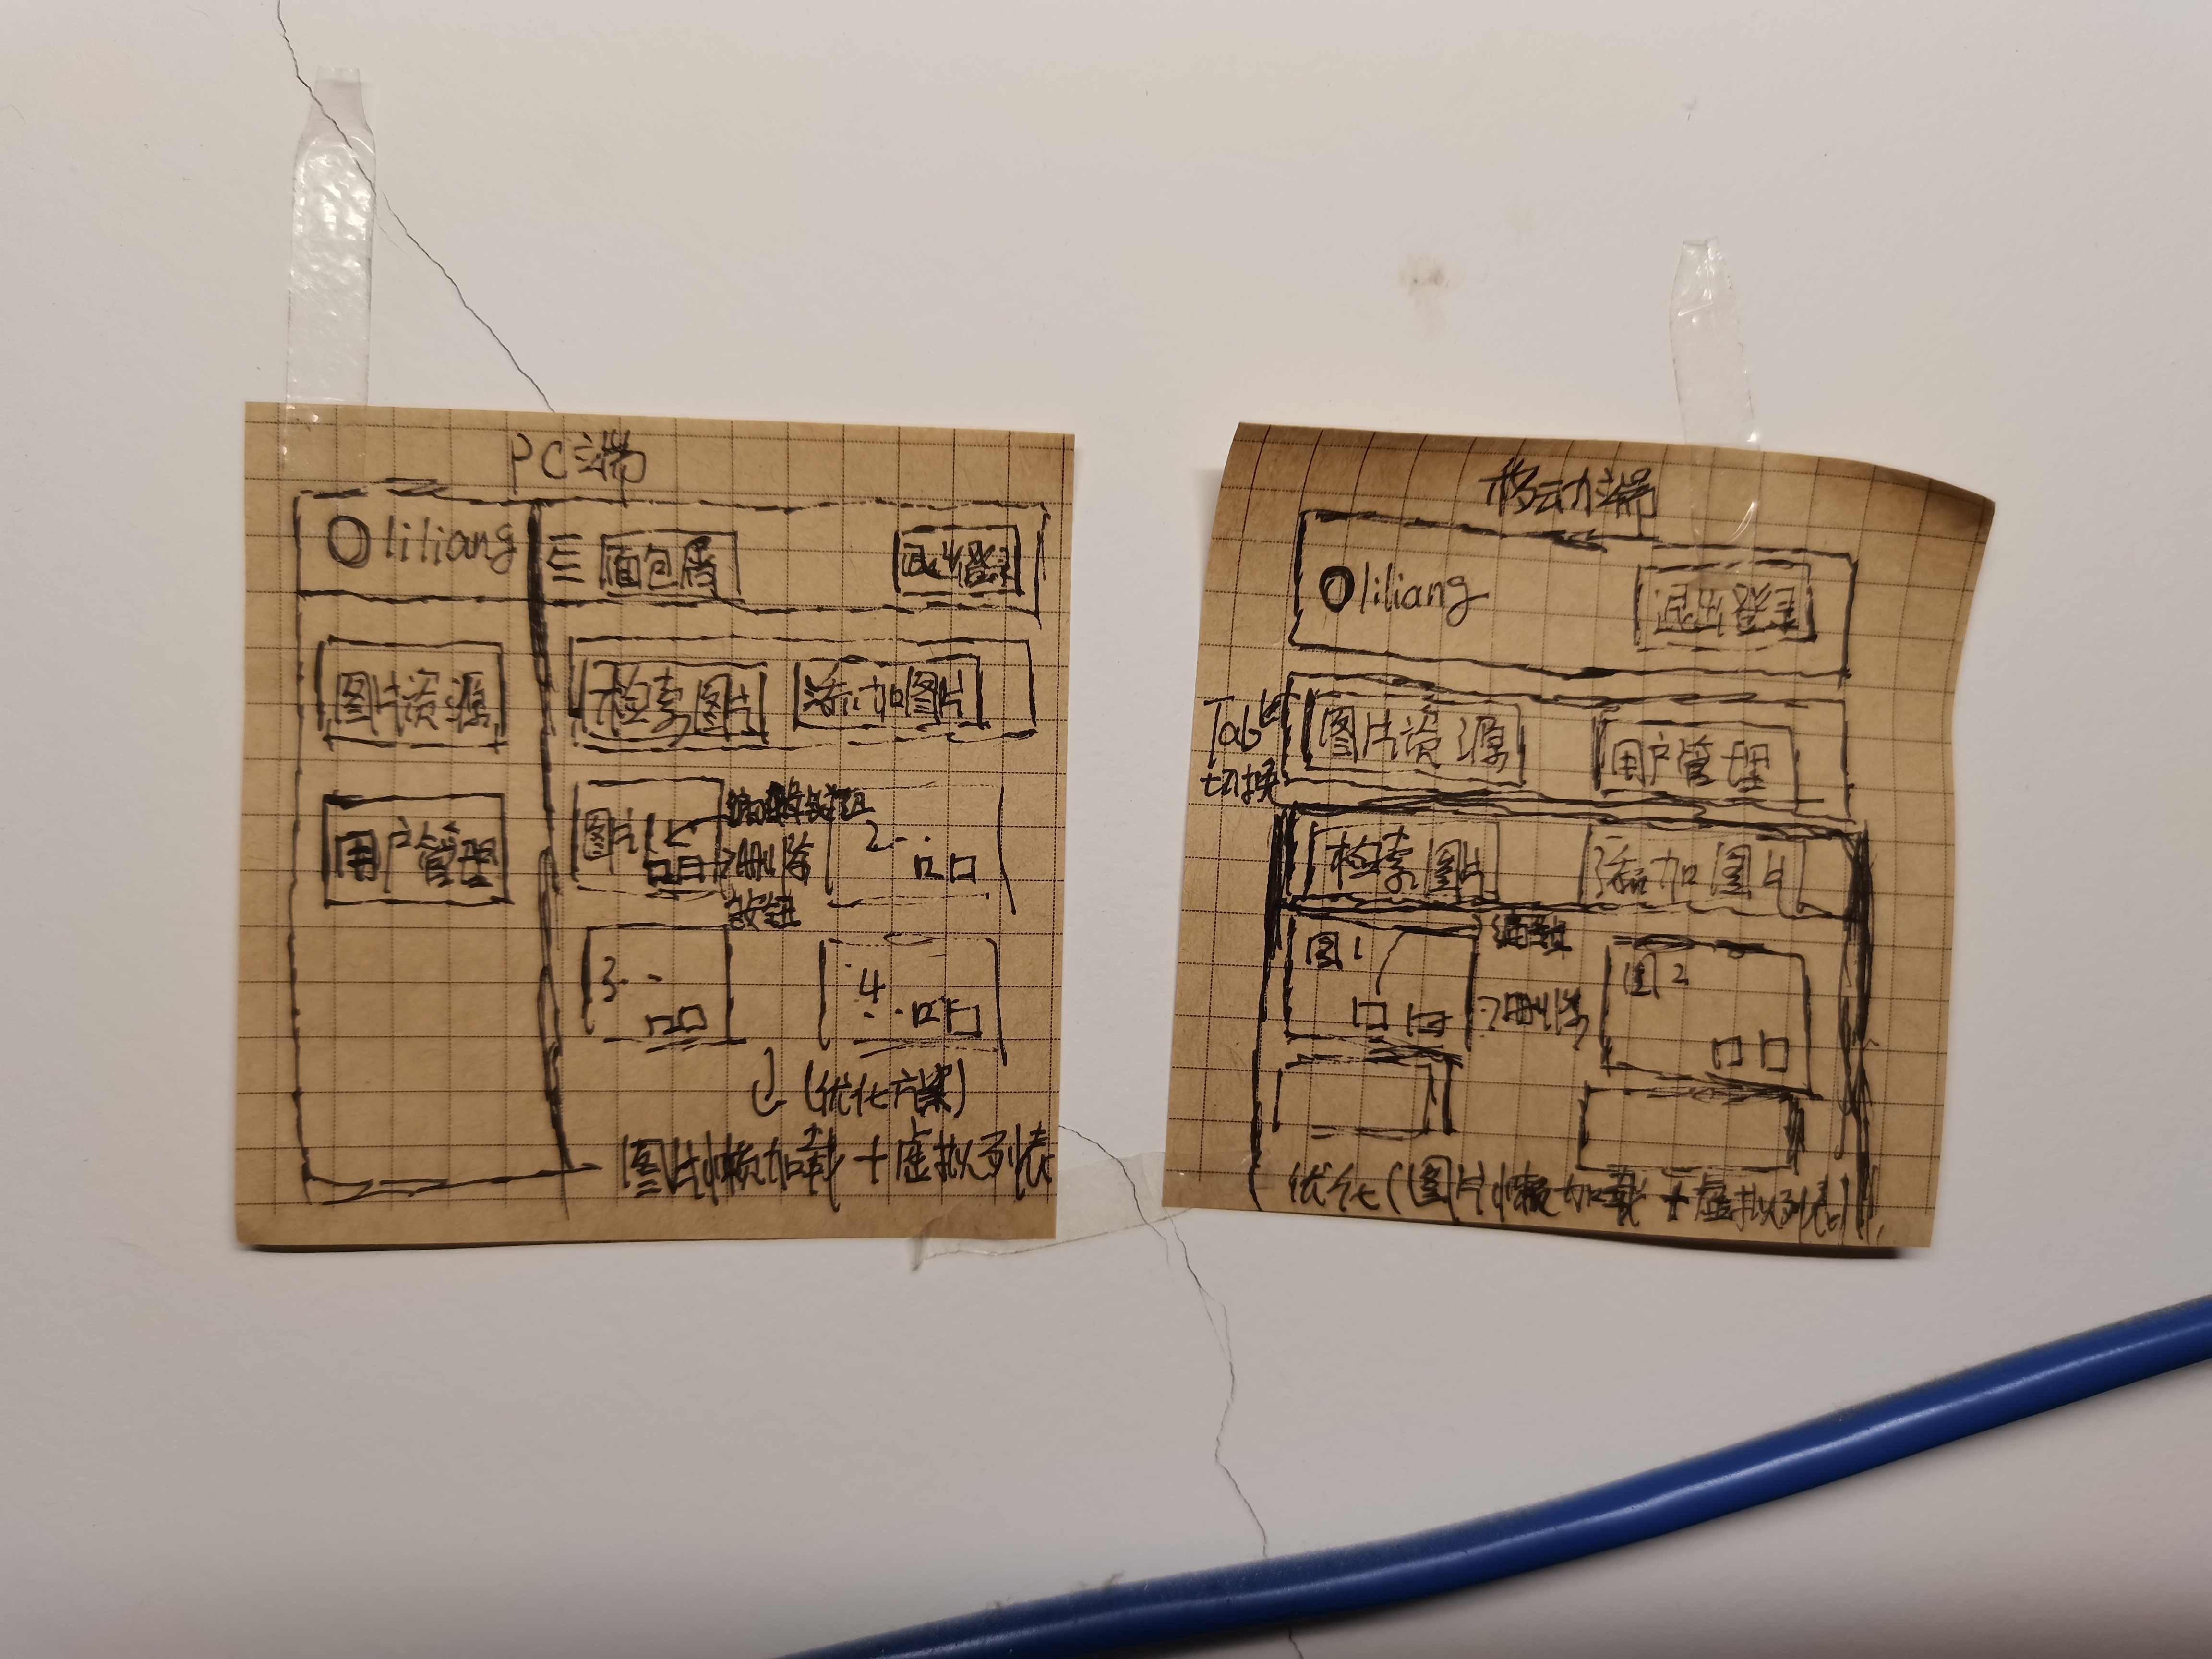 PC端
liliang
面包屑
退出登录
图片资源
检索图片
添加图片
用户管理
图片1
编辑按钮
删除
按钮
2
3
4
(优化方案)
图片懒加载+虚拟列表
移动端
liliang
退出登录
Tab
切换
图片资源
用户管理
检索图片
添加图片
图1
编辑
删除
图2
优化(图片懒加载+虚拟列表)